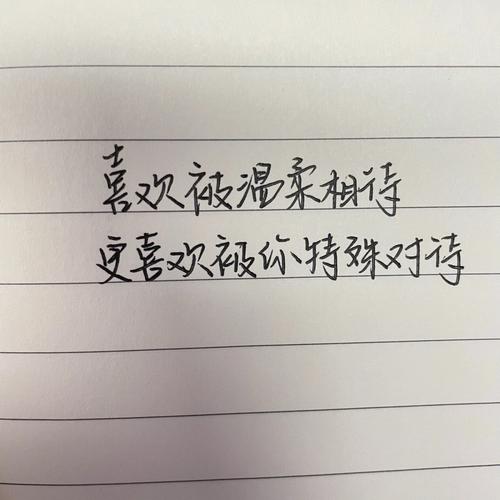 喜欢被温柔相待
更喜欢被你特殊对待